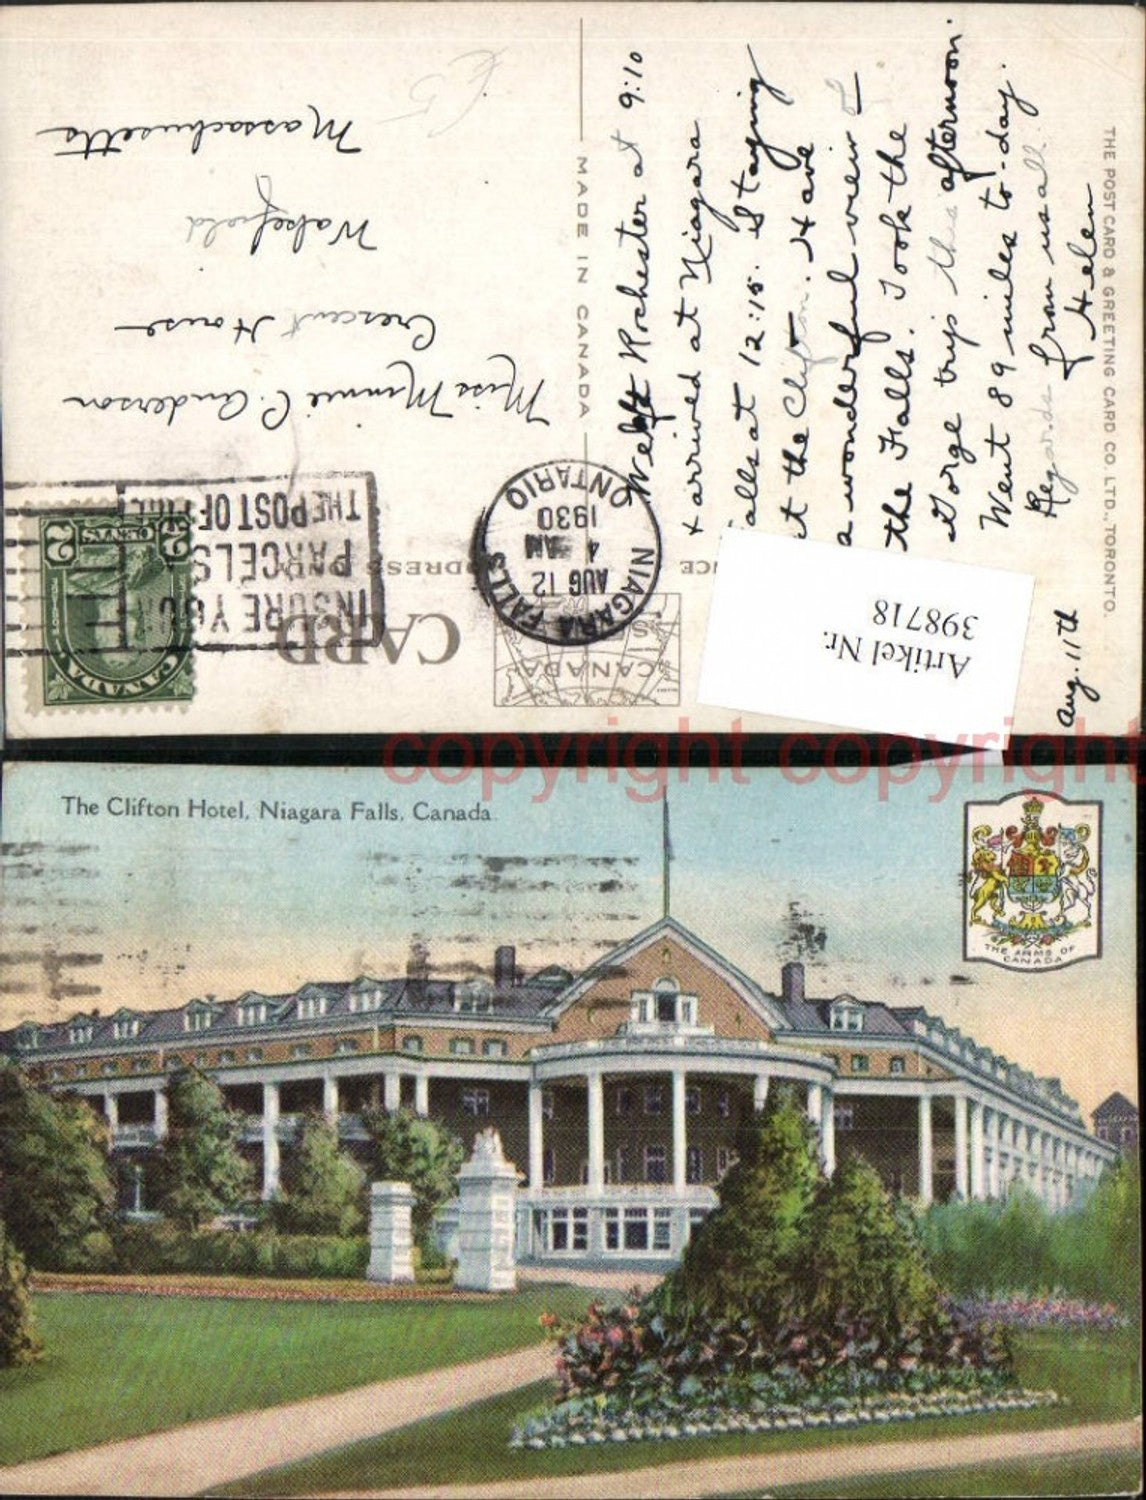 Aug. 11th
Weft Rochester at 9:10
+ arrived at Niagara
alls at 12:15. Staying
at the Clifton. Have
a wonderful view of
the Falls. Took the
Gorge trip this afternoon.
Went 89 miles to-day.
Regards from us all.
Helen
THE POST CARD & GREETING CARD CO. LTD., TORONTO.
MADE IN CANADA
CARD
CANADA
ADDRESS ONLY
NIAGARA FALLS
AUG 12
4 AM
1930
ONTARIO
INSURE YOUR
PARCELS
THE POST OFFICE
CANADA
2 CENTS 2
Miss Minnie C. Anderson
Crescent House
Wakefield
Massachusetts
Artikel Nr.
398718
copyright copyright
The Clifton Hotel, Niagara Falls, Canada.
THE ARMS OF
CANADA